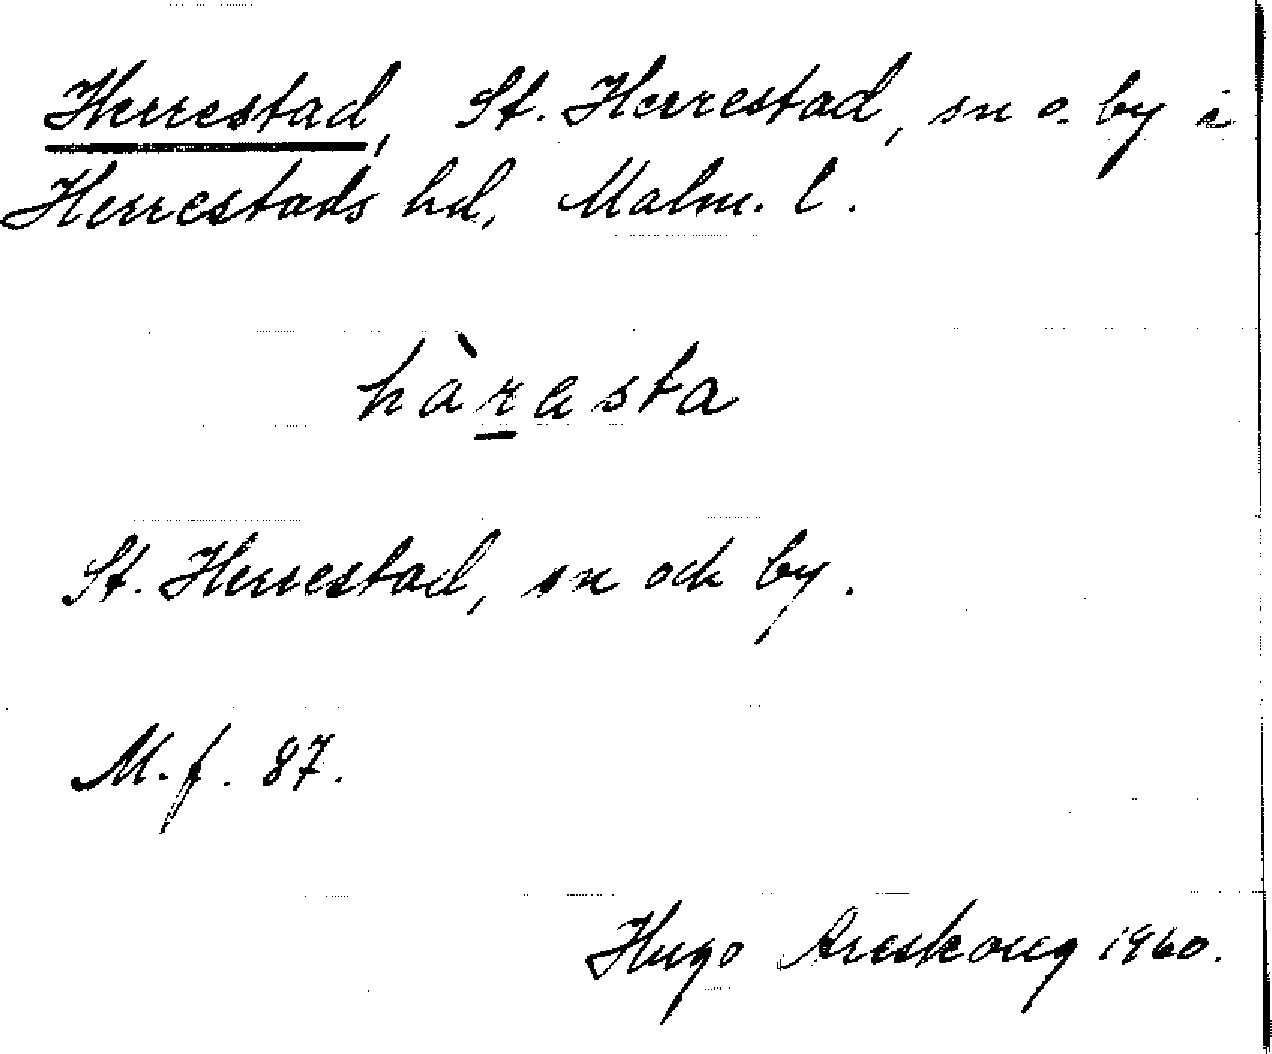 Herrestad, St. Herrestad, sn o. by i
Herrestads hd, Malm. l.
hàr̲asta
St. Herrestad, sn och by.
M.f. 87.
Hugo Areskoug 1960.